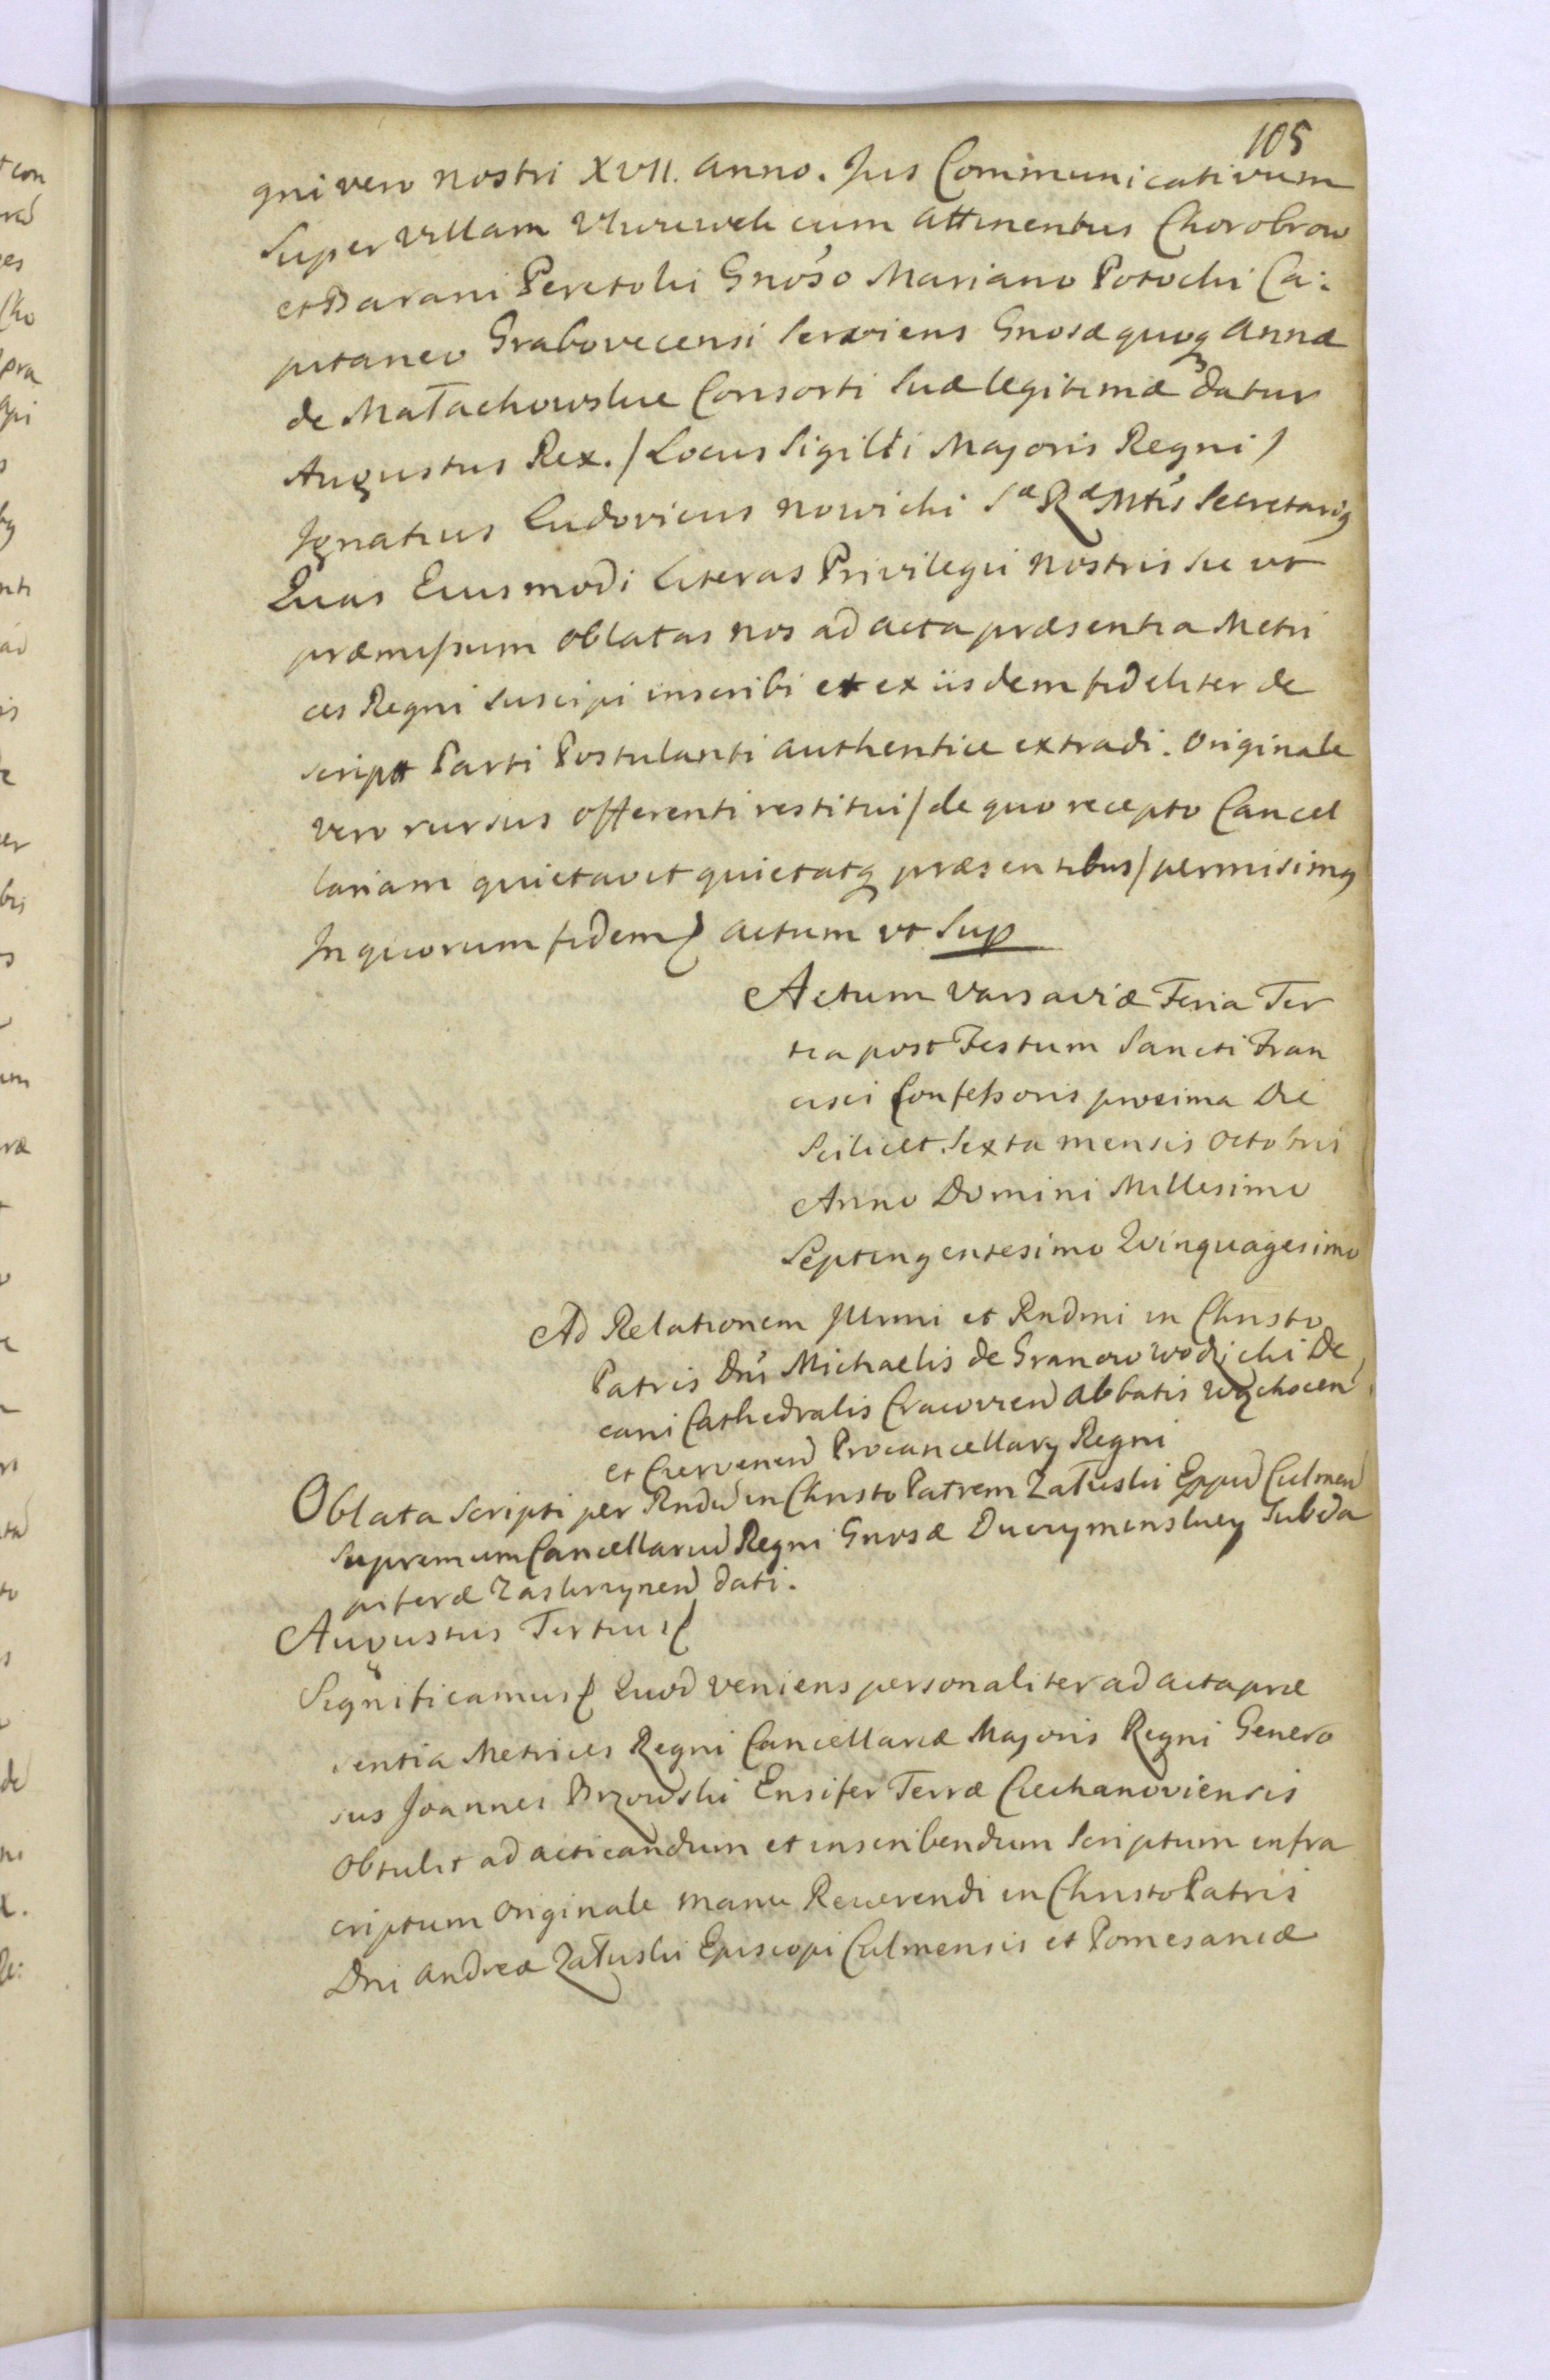 105
gni vero nostri XVII. anno. Jus Communicativum
super villam Uhrynek cum attinentiis Chorobrow
et Barani Peretoki Gnoso Mariano Potocki Ca:
pitaneo Grabovecensi serviens Gnosæ quoq annæ
de Małachowskie Consorti suæ legitimæ datur
Augustus Rex. / Locus Sigilli Majoris Regni /
Ignatius Ludovicus Nowicki Sæ Ræ Mtis Secretariq
Quas Eiusmodi literas Privilegii nostris sic ut
præmissum oblatas nos ad acta præsentia Metri
ces Regni suscipi inscribi et ex iisdem fideliter de
script Parti Postulanti authentice extradi. Originale
vero rursus offerenti restitui / de quo recepto Cancel
lariam quietavit quietatq præsentibus / permisimq
In quorum fidem actum ut sup
Actum Varsaviæ Feria Ter
tia post Festum Sancti Fran
cisci Confessoris proxima Die
Scilicet Sexta mensis Octobris
Anno Domini Millesimo
Septingentesimo Quinquagesimo
Ad Relationem Illmi et Rndmi in Christo
Patris Dni Michaelis de Granow Wodzicki De
cani Cathedralis Cracovien Abbatis Wąchocen
et Czervenen Procancellary Regni
Oblata Scripti per Rndu in Christo Patrem Załuski Eppu Culmen
Supremum Cancellariu Regni Gnosæ Duczymenskiey Subda
piferæ Zaskrzynen dati.
Augustus Tertius
Significamus Quod veniens personaliter ad acta præ
sentia Metrices Regni Cancellariæ Majoris Regni Genero
sus Joannes Brzowski Ensifer Terræ Ciechanoviensis
obtulit ad acticandum et inscribendum Scriptum infra
criptum originale manu Reverendi in Christo Patris
Dni Andreæ Załuski Episcopi Culmensis et Pomesaniæ